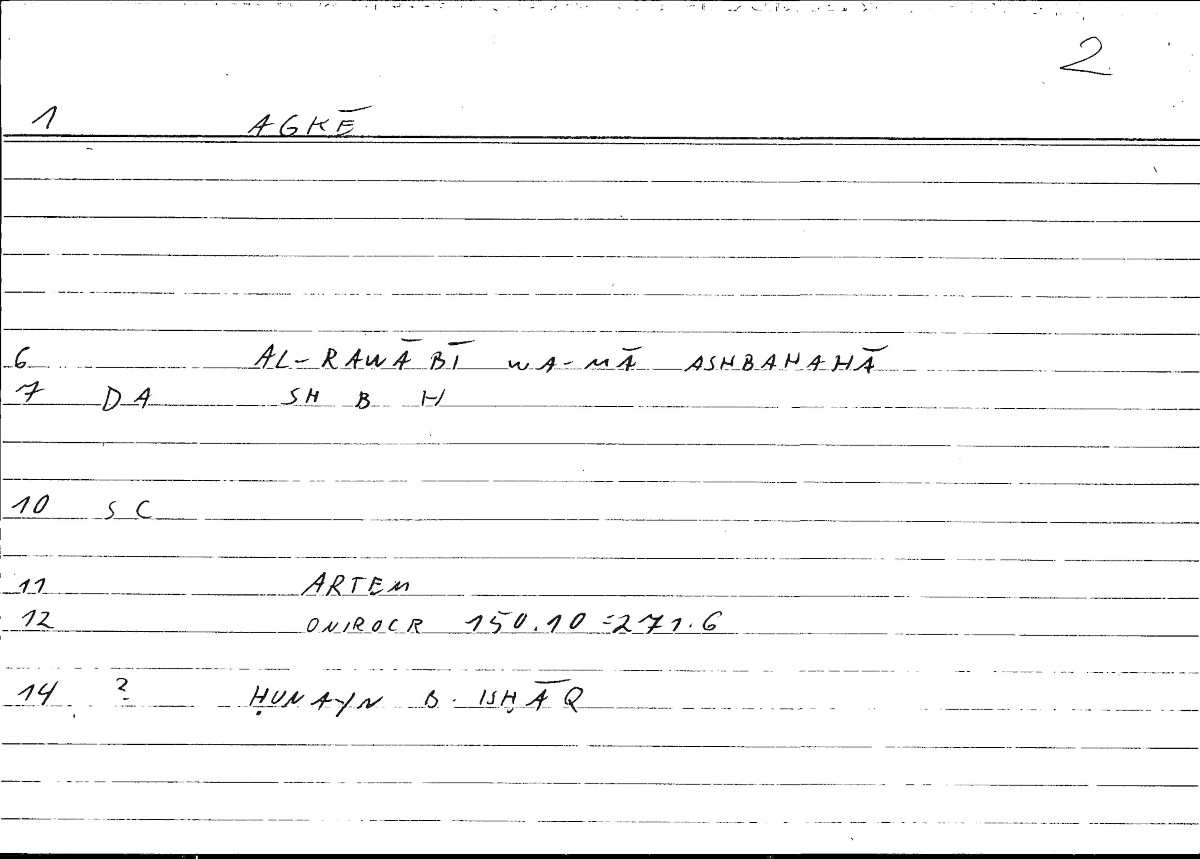 2
1 AGKĒ
6 AL-RAWĀBĪ WA-MĀ ASHBAHAHĀ
7 DA SH B H
10 SC
11 ARTEM
12 ONIROCR 150.10 = 271.6
14 ? ḤUNAYN B. ISḤĀQ